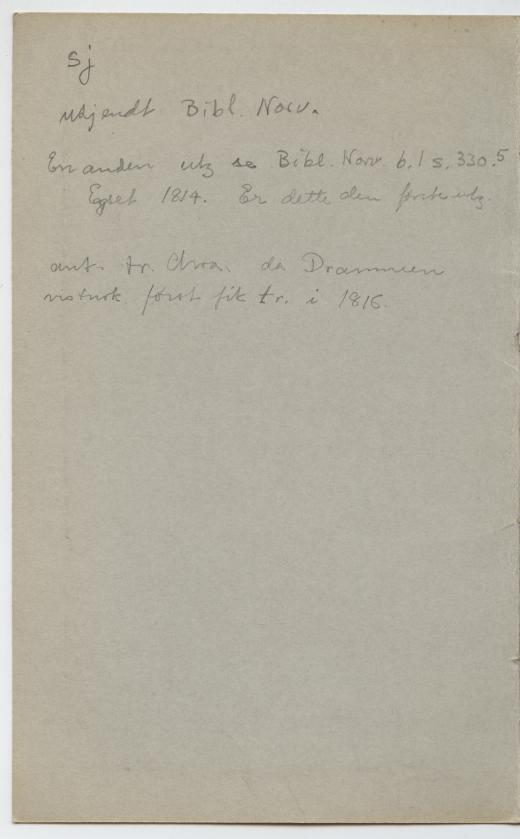 Sj
ukjendt Bibl. Norv.
En anden utg se Bibl. Norv. b. 1 s. 330.5
Egset 1814. Er dette den første utg.
ant. tr. Chra. da Drammen
vistnok først fik tr. i 1816.